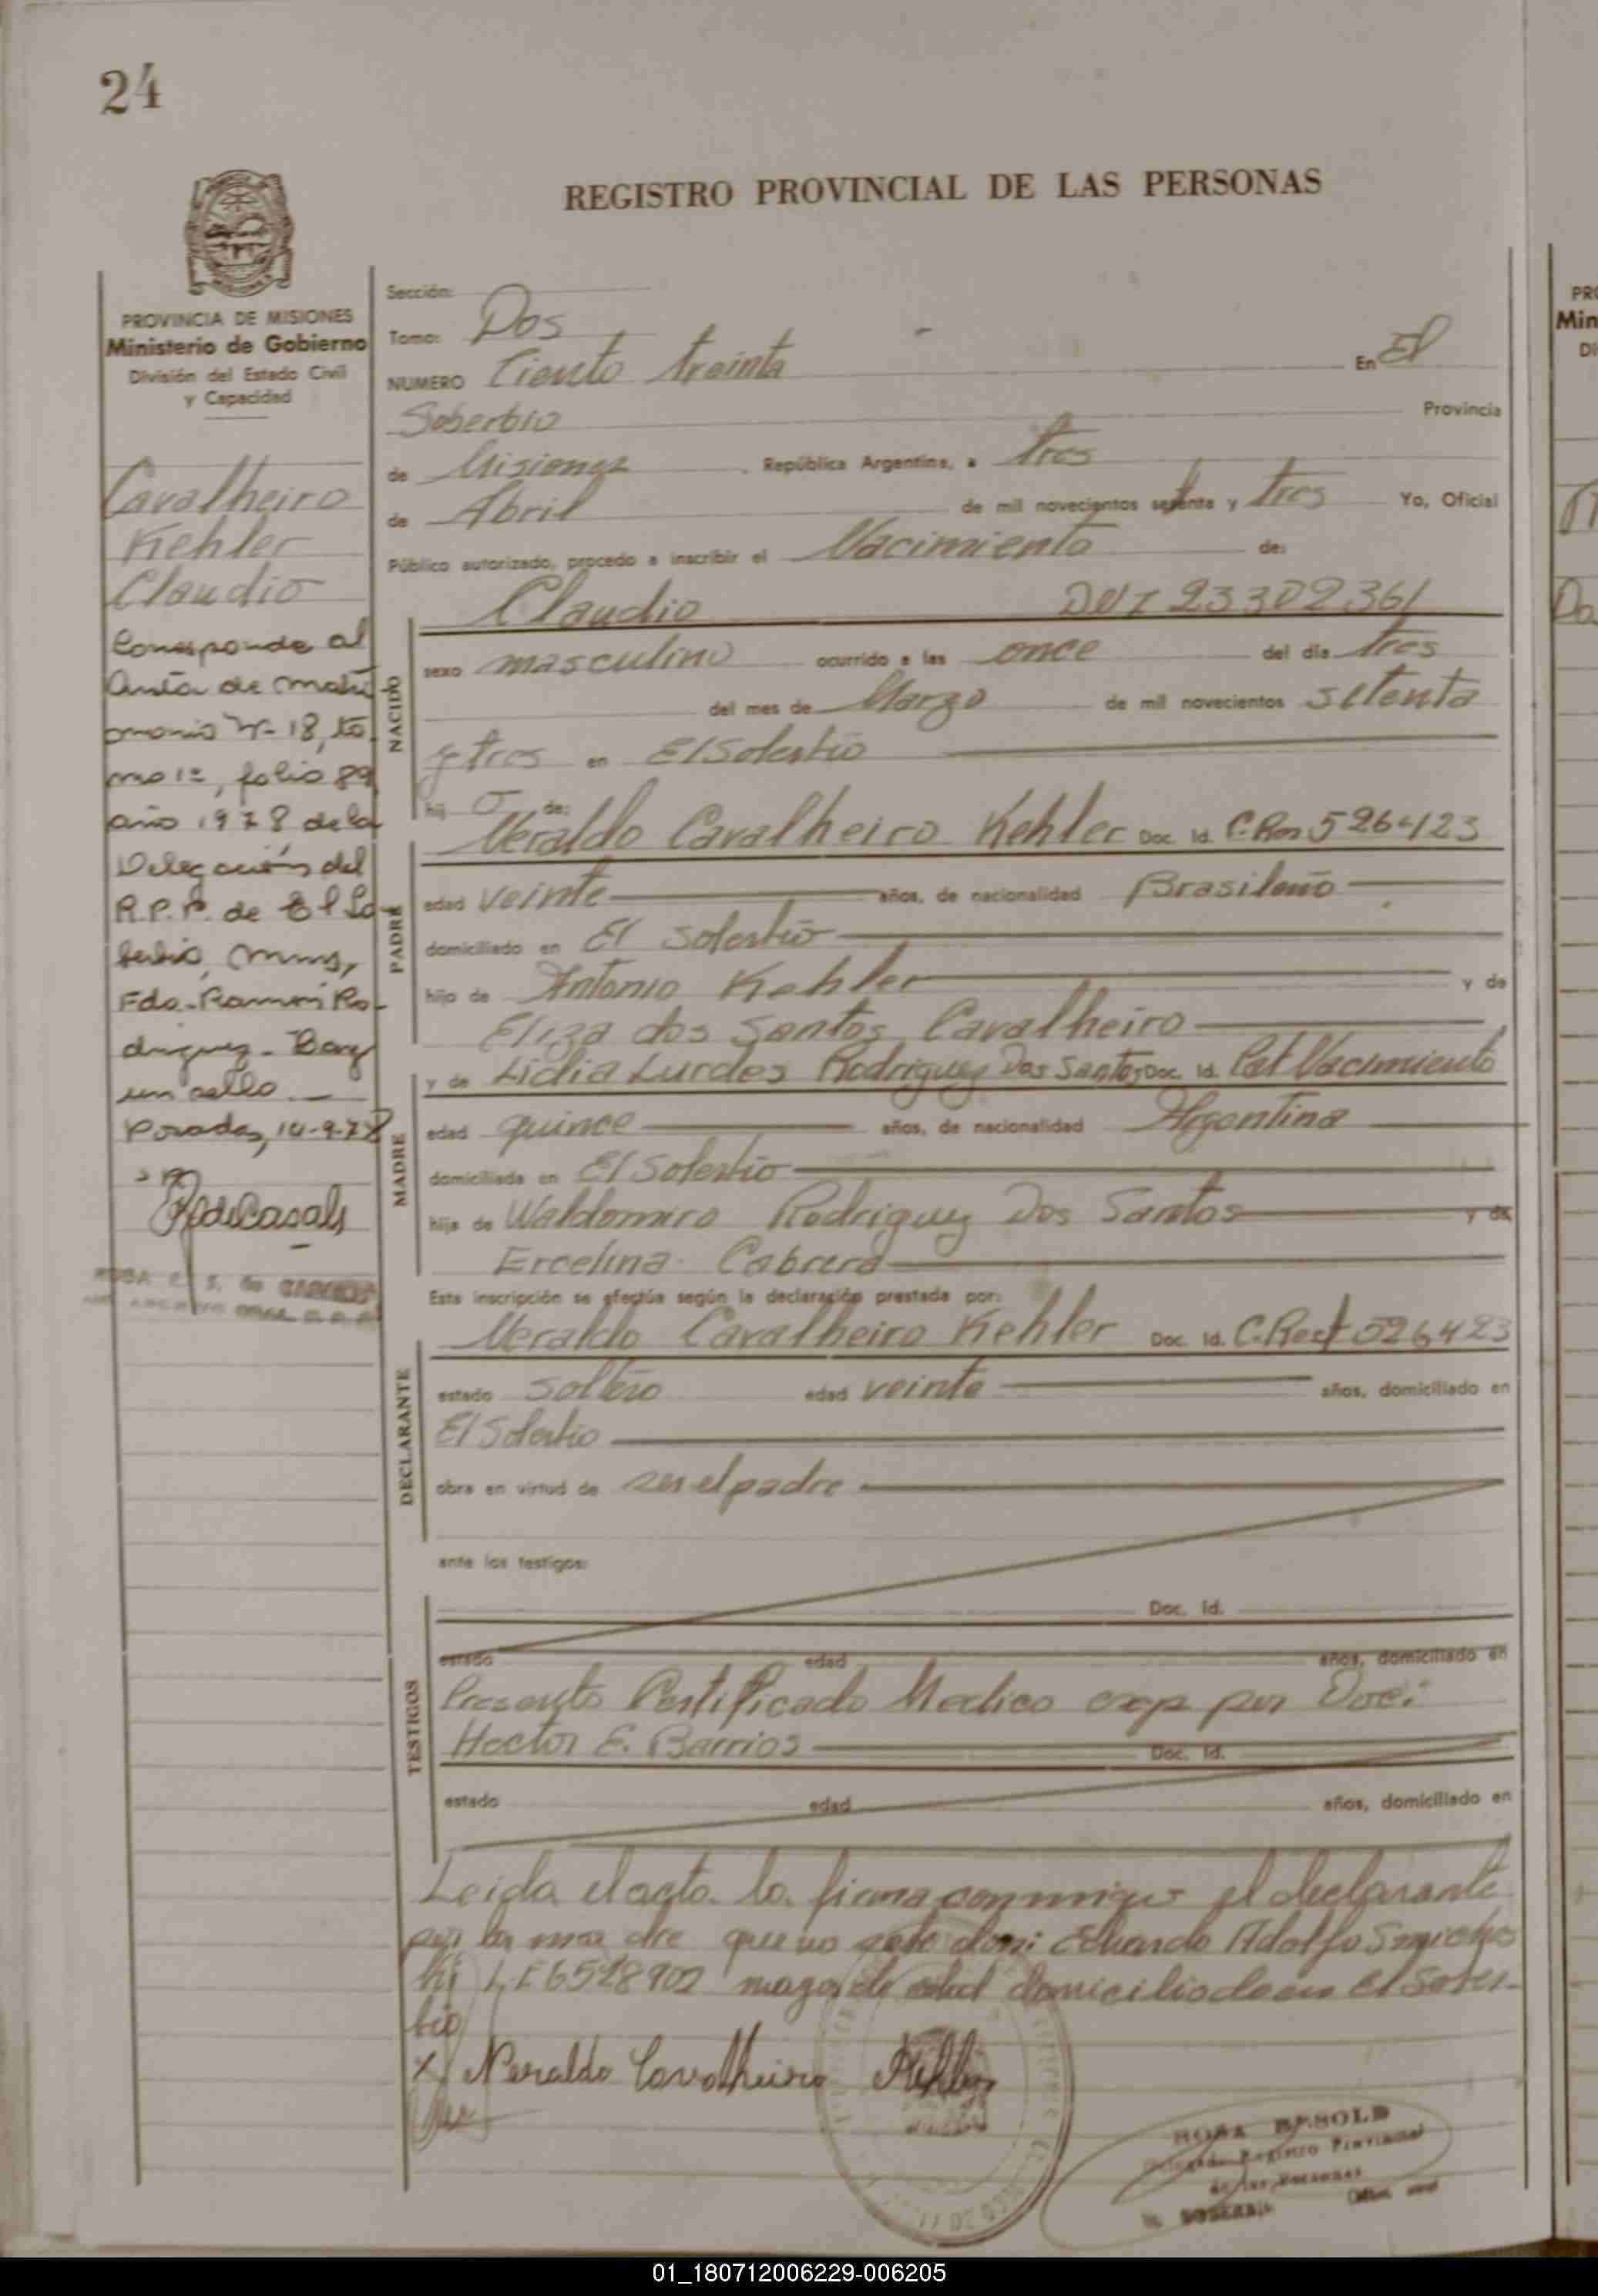 24
REGISTRO PROVINCIAL DE LAS PERSONAS
PROVINCIA DE MISIONES
Ministerio de Gobierno
División del Estado Civil
y Capacidad
Cavalheiro
Kehler
Claudio
Corresponde al
Acta de matri
monio Nº 18, to
mo 1º, folio 89
año 1978 de la
Delegación del
R.P.P. de El So
berbio, Mnes,
Fdo. Ramón Ro
driguez - Hay
un sello.—
Posadas, 14-9-78
RdeCasals
Sección:
Tomo: Dos
NUMERO Ciento treinta En El
Soberbio Provincia
de Misiones, República Argentina, a tres
de Abril de mil novecientos setenta y tres Yo, Oficial
Público autorizado, procedo a inscribir el Nacimiento de:
NACIDO
Claudio DNI 23302361
sexo masculino ocurrido a las once del día tres
del mes de Marzo de mil novecientos setenta
y tres en El Soberbio
hij o de:
PADRE
Neraldo Cavalheiro Kehler Doc. Id. 5264123
edad veinte años, de nacionalidad Brasileño
domiciliado en El Soberbio
hijo de Antonio Kehler y de
Eliza dos Santos Cavalheiro
MADRE
y de Lidia Lurdes Rodriguez Dos Santos Doc. Id. Nacimiento
edad quince años, de nacionalidad Argentina
domiciliada en El Soberbio
hija de Waldomiro Rodriguez Dos Santos y de
Ercelina Cabrera
Esta inscripción se efectúa según la declaración prestada por:
DECLARANTE
Neraldo Cavalheiro Kehler Doc. Id. 526423
estado soltero edad veinte años, domiciliado en
El Soberbio
obra en virtud de ser el padre
ante los testigos:
TESTIGOS
Doc. Id.
estado edad años, domiciliado en
Presento Certificado Medico exp por Doc:
Hector E. Barrios Doc. Id.
estado edad años, domiciliado en
Leida el acta la firma conmigo el declarante
por la madre que no Eduardo Adolfo
L.E 6528902 mayor de edad domiciliado en El Sober-
bio
x Neraldo Cavalheiro Kehler
ROSA BESOLD
Delegada Registro Provincial
de las Personas
EL SOBERBIO
01_180712006229-006205